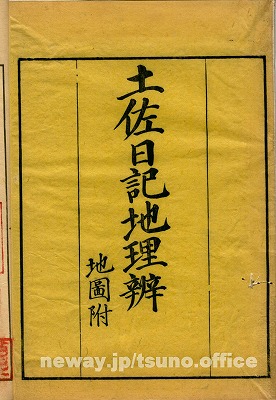 土佐日記地理辨
地圖附
neway.jp/tsuno.office